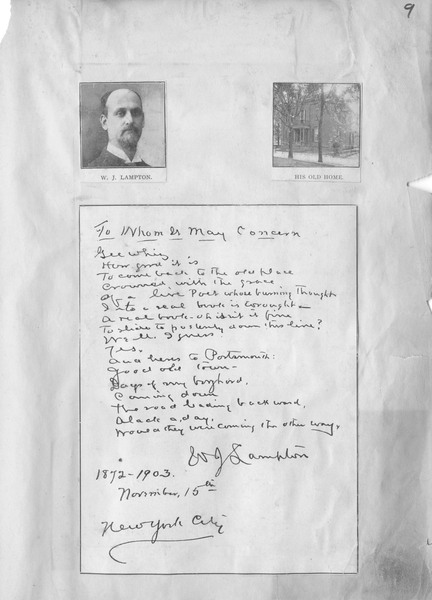 9
W. J. LAMPTON.
HIS OLD HOME.
To Whom It May Concern
Gee whiz
How good it is
To come back to the old place
Crowned with the grace
Of a live Poet whose burning thought
Into a real book is wrought—
A real book. Oh isn't it fine
To slide to posterity down this line?
Well, I guess
Yes.
And here's to Portsmouth:
Good old town—
Days of my boyhood.
Coming down
The road leading backward,
Alack a day,
Would they were coming the other way.
W J Lampton
1872-1903.
November, 15th
New York City